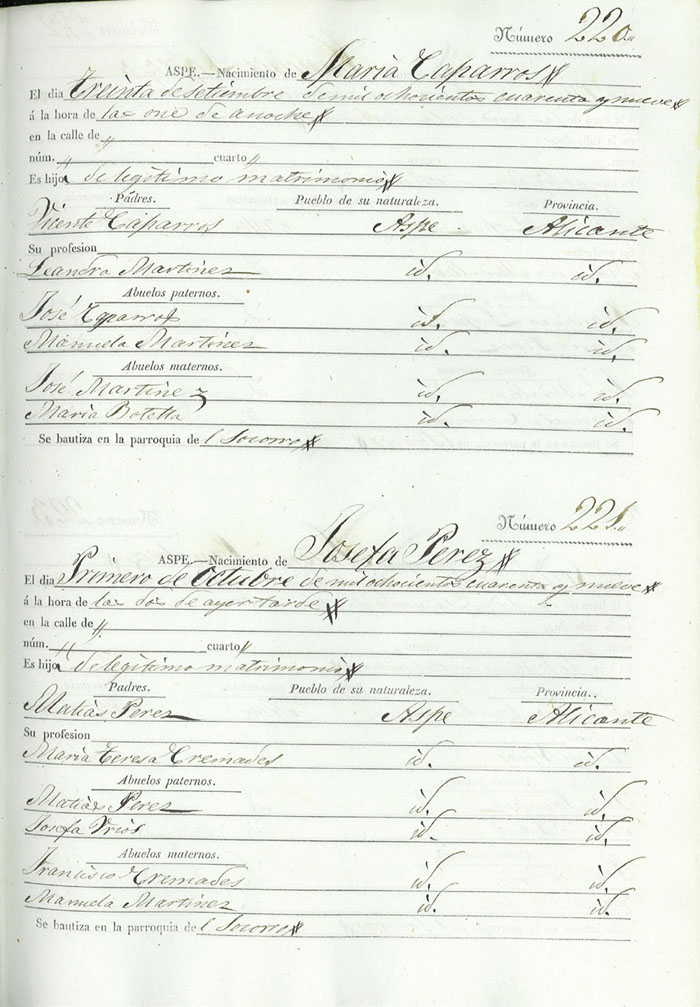 Número 220.
ASPE.—Nacimiento de Maria Caparros
El dia treinta de setiembre de mil ochocientos cuarenta y nueve
á la hora de las one de anoche
en la calle de "
núm. " cuarto "
Es hija de legitimo matrimonio
Padres. Pueblo de su naturaleza. Provincia.
Vicente Caparros Aspe Alicante
Su profesion
Leandra Martinez id. id.
Abuelos paternos.
José Caparros id. id.
Manuela Martinez id. id.
Abuelos maternos.
José Martinez id. id.
Maria Botella id. id.
Se bautiza en la parroquia del Socorro
Número 221.
ASPE.—Nacimiento de Josefa Perez
El dia Primero de Octubre de mil ochocientos cuarenta y nueve
á la hora de las dos de ayer tarde
en la calle de "
núm. " cuarto "
Es hija de legitimo matrimonio
Padres. Pueblo de su naturaleza. Provincia.
Matias Perez Aspe Alicante
Su profesion
Maria Teresa Cremades id. id.
Abuelos paternos.
Matias Perez id. id.
Josefa id. id.
Abuelos maternos.
Francisco Cremades id. id.
Manuela Martinez id. id.
Se bautiza en la parroquia del Socorro